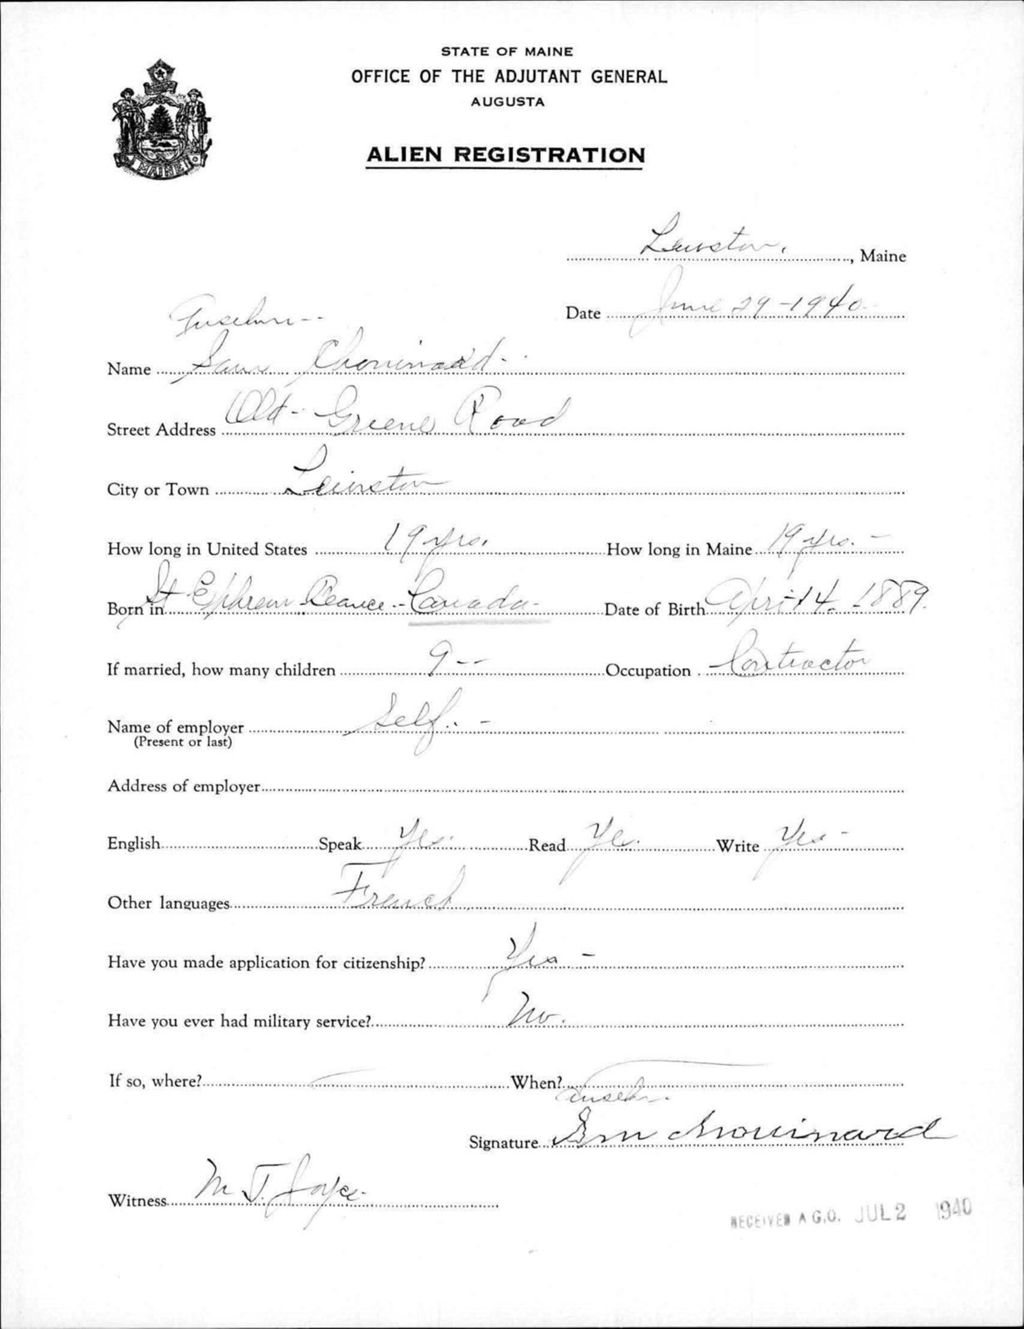 STATE OF MAINE
OFFICE OF THE ADJUTANT GENERAL
AUGUSTA
MAINE
ALIEN REGISTRATION
Lewiston, Maine
Date June 29-1940
Anselm--
Name Chouinard
Street Address Old Greene Road
City or Town Lewiston
How long in United States 19 yrs. How long in Maine 19 yrs. -
Born in St Ephrem Beauce - Canada - Date of Birth Apr. 14. 1889.
If married, how many children 9-- Occupation Contractor
Name of employer Self. -
(Present or last)
Address of employer
English Speak Yes Read Yes Write Yes -
Other languages French
Have you made application for citizenship? Yes -
Have you ever had military service? No.
If so, where? When?
Anselm
Signature Sam Chouinard
Witness M T. Joyce
RECEIVED A.G.O. JUL 2 1940